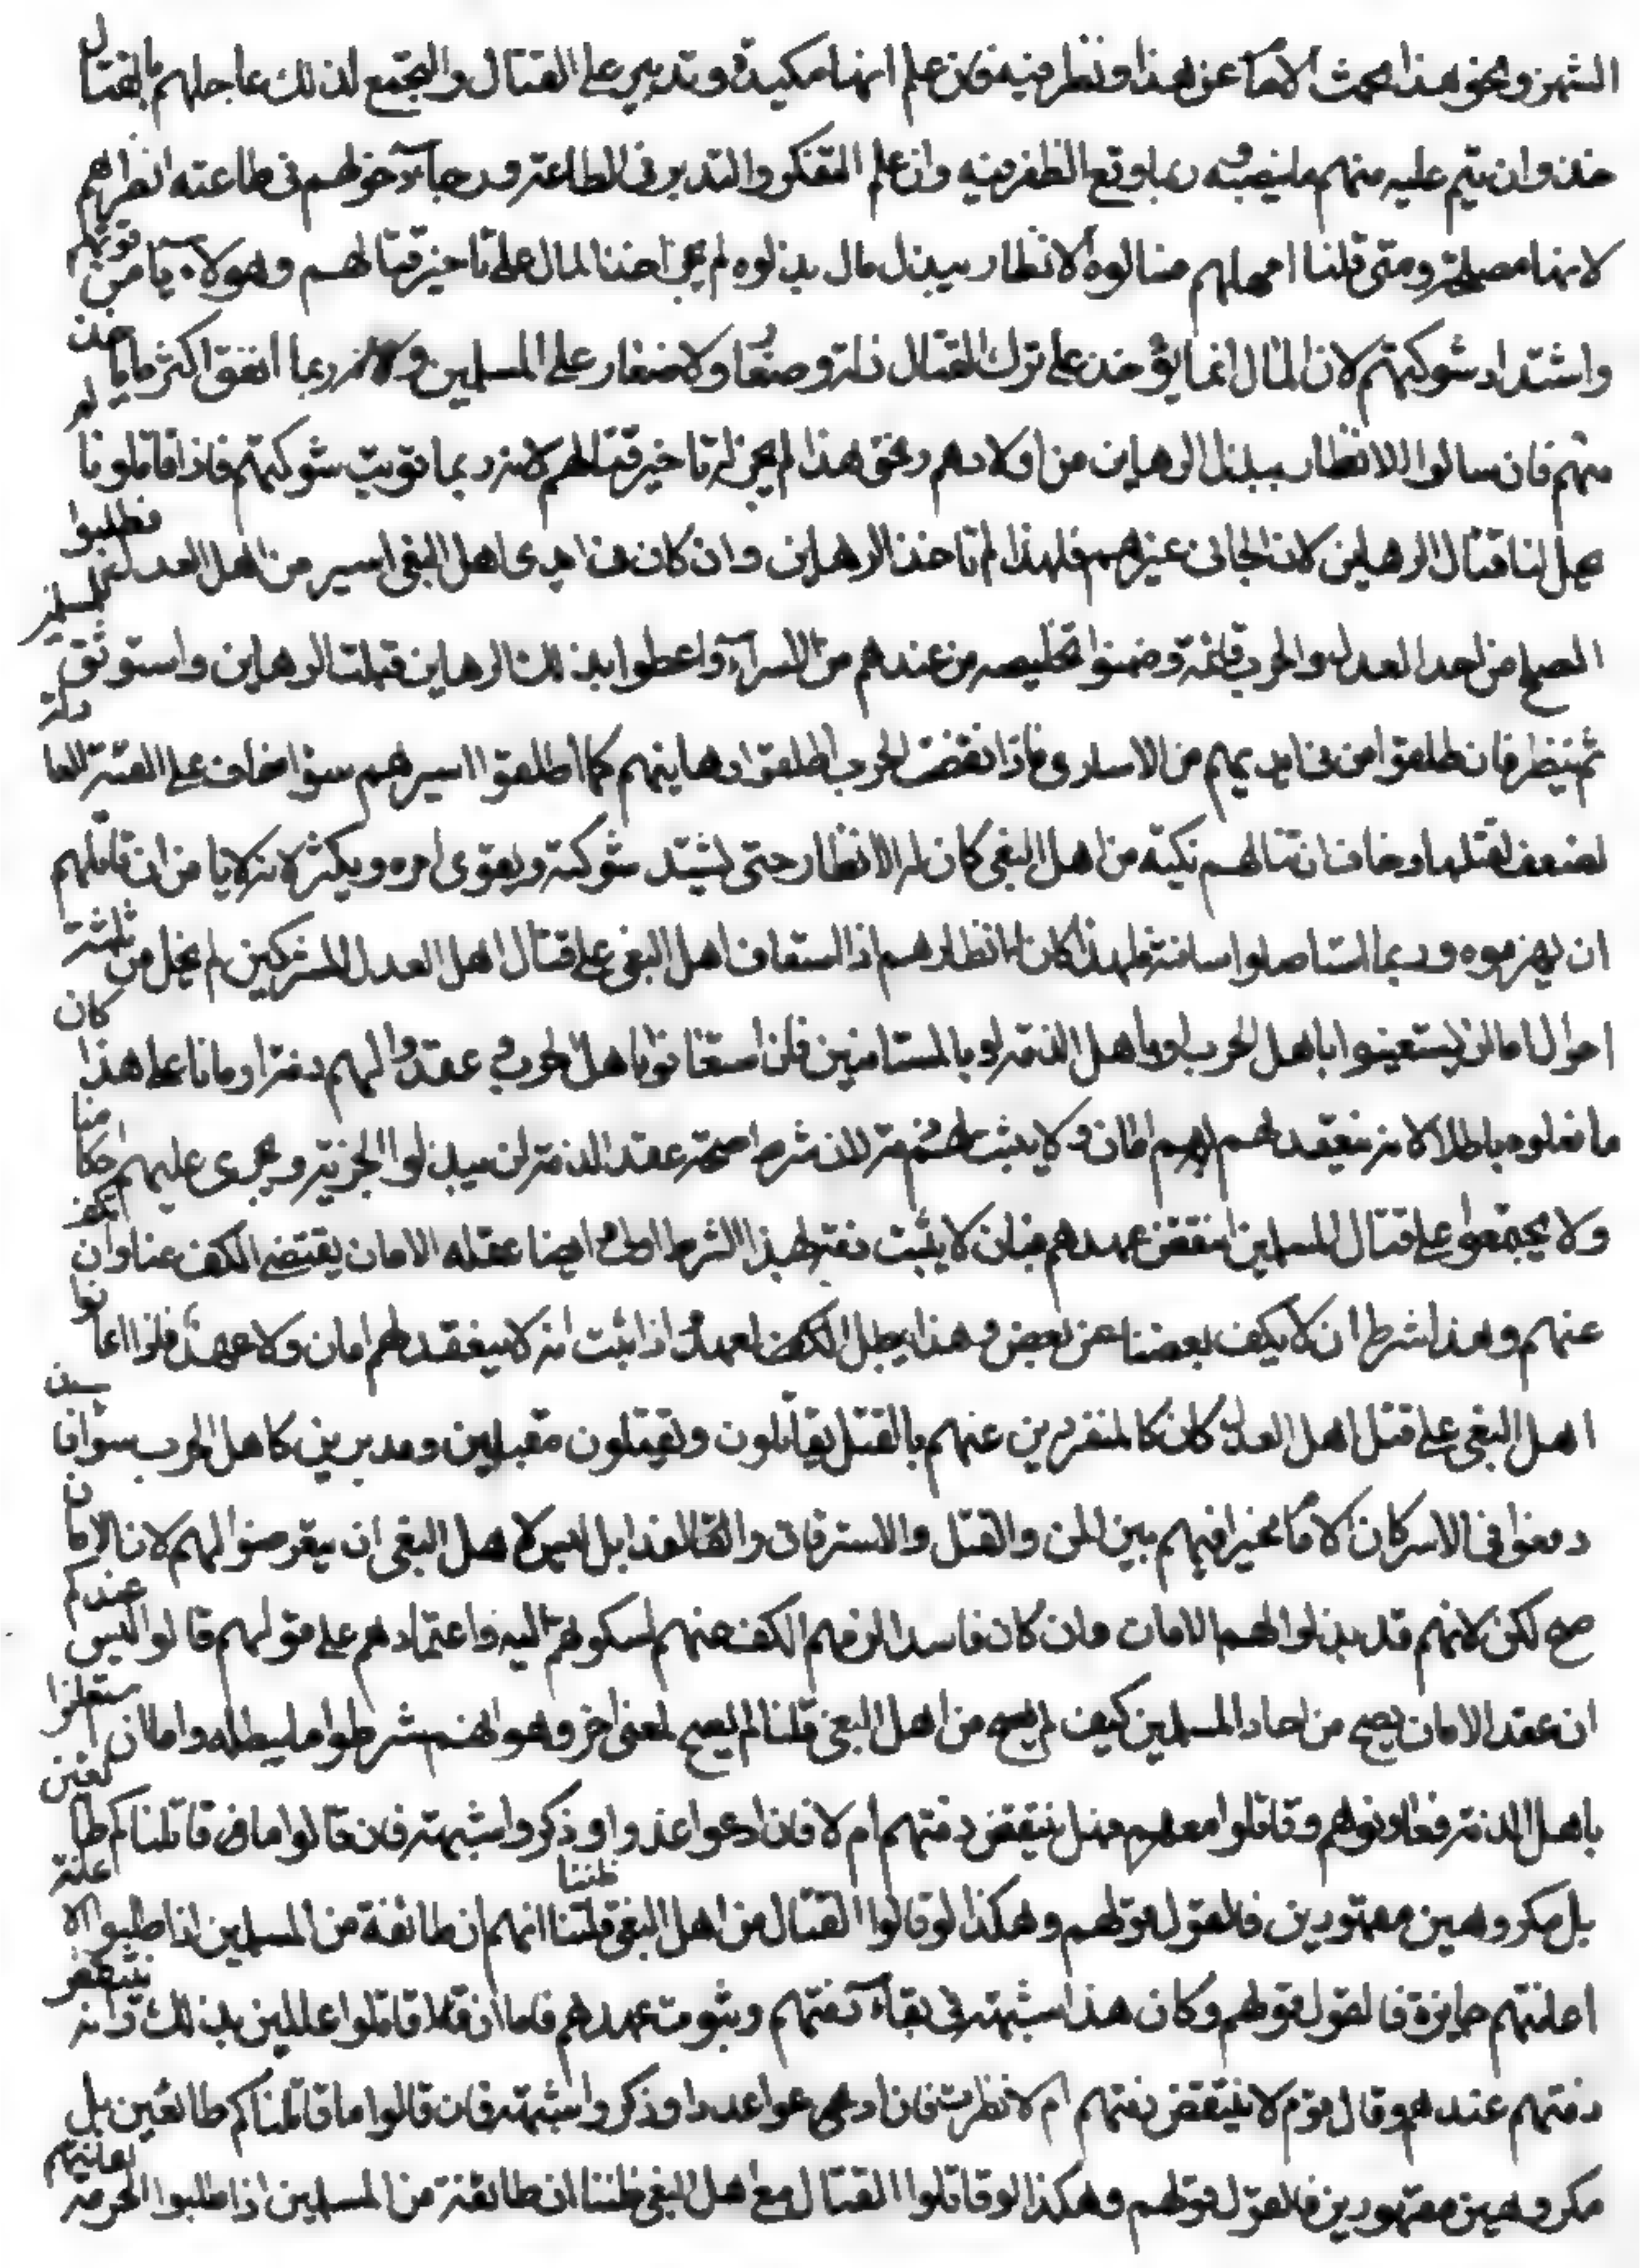 الشهر ونحو هذا بحث الامام عن هذا ونظر فيه فان علم انها مكيدة وتدبير على القتال والتجمع لذلك عاجلهم بالقتال
خذ وان يتم عليه منهم ما ينصبه ربما وقع الظفر فيه وان علم التفكر والتدبر فى الطاعة ورجاء دخولهم فى طاعته انظرهم
لانها مصلحة ومتى قلنا امهلهم فسالوه الانظار ببذل مال بذلوه لم يجز اخذ المال على تاخير قتالهم وهو لا يامن قوتهم
واشتداد شوكتهم لان المال انما يؤخذ على ترك القتال ذلة وصغارا ولا صغار على المسلمين ولانه ربما انفق اكثر ما ياخذ
منهم فان سالوا الانظار ببذل الرهاين من اولادهم ونحو هذا لم يجز له تاخير قتالهم لانه ربما قويت شوكتهم فاذا قاتلونا لم
يحل لنا قتال الرهاين لان الجانى غيرهم فلهذا لم تاخذ الرهاين وان كان فى ايدى اهل البغى اسير من اهل العدل فطلبوا
الصلح من اهل العدل والحرب قائمة وضمنوا تخليصه من عندهم من الاسراء واعطوا بذلك الرهاين قبلت الرهاين واستوثق للمسلمين
ثم ينظر فان طلقوا من فى ايديهم من الاسارى فاذا انقضت الحرب اطلقوا رهاينهم كما اطلقوا اسيرهم سوا خاف على الفئة العادلة
لضعف لقتلها او خاف ان قتالهم نكية من اهل البغى كان له الانظار حتى يشتد شوكته ويقوى امره ويكثر لانه لا يامن ان قاتلهم
ان يهزموه وربما استاصلوا سافته فلهذا كان انظارهم اذا استعان اهل البغى على قتال اهل العدل بالمشركين لم يخل من ثلثة
احوال اما ان يستعينوا باهل الحرب او باهل الذمة او بالمستامنين فان استعانوا باهل الحرب وعقدوا لهم ذمة او امانا على هذا كان
ما فعلوه باطلا لانه ينعقد لهم امان ولا يثبت لهم ذمة لان شرط صحة عقد الذمة ان يبذلوا الجزية ويجرى عليهم احكامنا
ولا يجتمعوا على قتال المسلمين انتقض عهدهم فبان لا يثبت ذمة بهذا الشرط اولى وايضا عقد الامان يقتضى الكف عنا وان نكف
عنهم وهذا شرط ان لا يكف بعضنا عن بعض وهذا يبطل الكف لعهد اذا ثبت انه لا ينعقد لهم امان ولا عهد فلو اعانوا
اهل البغى على قتل اهل العدل كان كالمنفردين عنهم بالقتل يقاتلون ويقتلون مقبلين ومدبرين كاهل الحرب سوا فان
دفعوا فى الاسر كان الامام مخيرا فيهم بين المن والقتل والاسترقاق والفدا بل ليس لاهل البغى ان يتعرضوا لهم لان الامان
صح لكن لانهم قد بذلوا لهم الامان وان كان فاسدا لزمهم الكف عنهم لسكونهم اليه واعتمادهم على قولهم قالوا اليس عندكم
ان عقد الامان يصح من احاد المسلمين كيف لم يصح من اهل البغى قلنا لم يصح لمعنى اخر وهو انهم شرطوا ما يبطله واما ان استعانوا
باهل الذمة فعاونوهم وقاتلوا معهم فهل ينتقض ذمتهم ام لا فان ادعوا عذرا وذكروا شبهة فان قالوا ما قاتلناكم طائعين
بل مكروهين مقهورين فالقول قولهم وهكذا لو قالوا القتال من اهل البغى ظننا انهم ان طائفة من المسلمين اذا طلبوا الاعانة
اعانتهم جايزة فالقول قولهم وكان هذا شبهة فى بقاء ذمتهم وثبوت عهدهم فاما ان قاتلوا عالمين بذلك وانه ينتقض
ذمتهم عندهم وقال قوم لا ينتقض ذمتهم ام لا نظرت فان ادعوا عذرا وذكروا شبهة فان قالوا ما قاتلناكم طائعين بل
مكروهين مقهورين فالقول قولهم وهكذا لو قاتلوا القتال مع اهل البغى ظننا ان طائفة من المسلمين اذا طلبوا المعونة اعانتهم